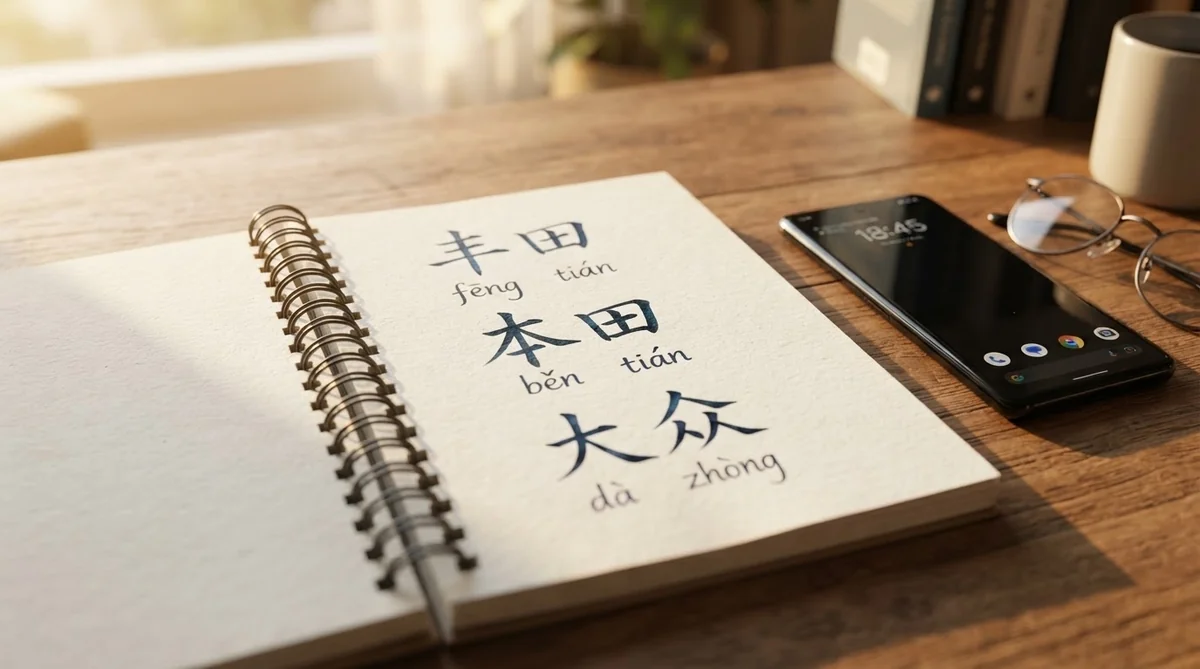 丰田
fēng tián
本田
běn tián
大众
dà zhòng
18:45